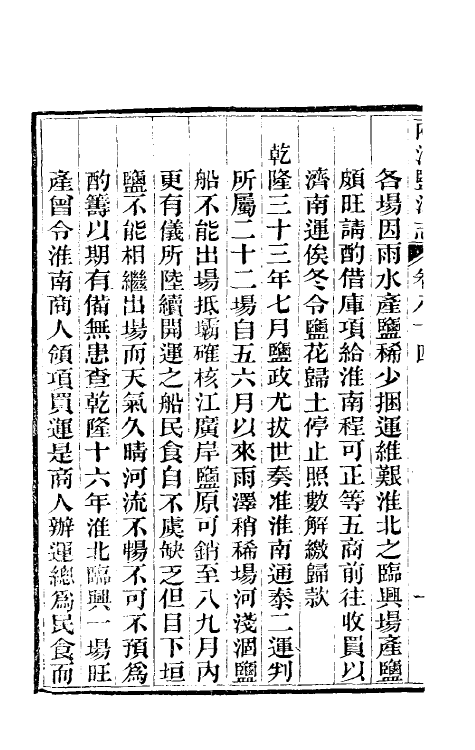 兩淮鹽法志 卷八十四 一
各場因雨水產鹽稀少捆運維艱淮北之臨興場產鹽
頗旺請酌借庫項給淮南程可正等五商前往收買以
濟南運俟冬令鹽花歸土停止照數解繳歸款
乾隆三十三年七月鹽政尤拔世奏准淮南通泰二運判
所屬二十二場自五六月以來雨澤稍稀場河淺涸鹽
船不能出場抵壩確核江廣岸鹽原可銷至八九月內
更有儀所陸續開運之船民食自不虞缺乏但目下垣
鹽不能相繼出場而天氣久晴河流不暢不可不預爲
酌籌以期有備無患查乾隆十六年淮北臨興一場旺
產曾令淮南商人領項買運是商人辦運總爲民食而